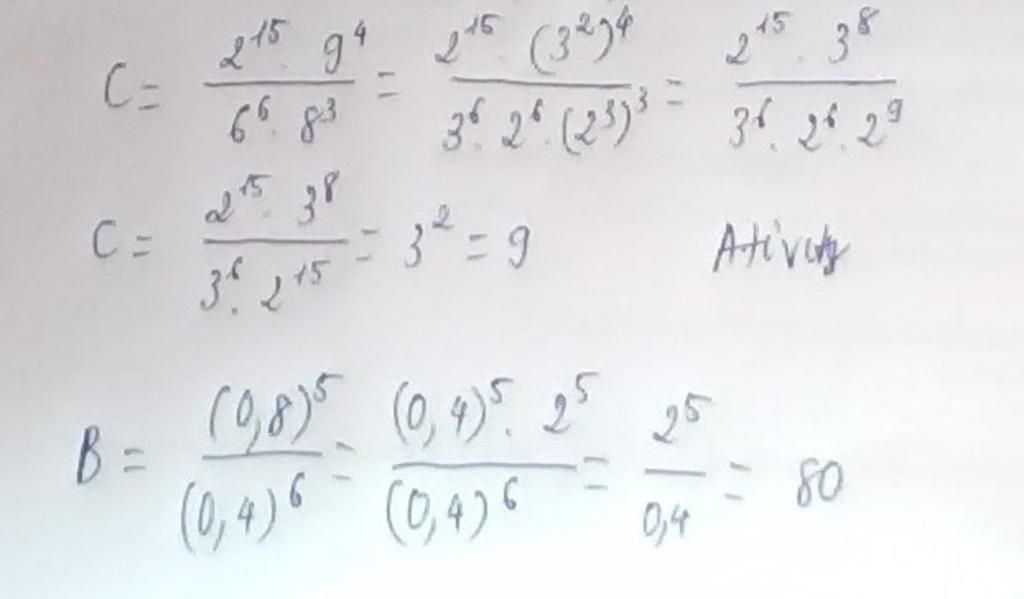 C = \frac{2^{15} \cdot 9^4}{6^6 \cdot 8^3} = \frac{2^{15} \cdot (3^2)^4}{3^6 \cdot 2^6 \cdot (2^3)^3} = \frac{2^{15} \cdot 3^8}{3^6 \cdot 2^6 \cdot 2^9}
C = \frac{2^{15} \cdot 3^8}{3^6 \cdot 2^{15}} = 3^2 = 9
B = \frac{(0,8)^5}{(0,4)^6} = \frac{(0,4)^5 \cdot 2^5}{(0,4)^6} = \frac{2^5}{0,4} = 80